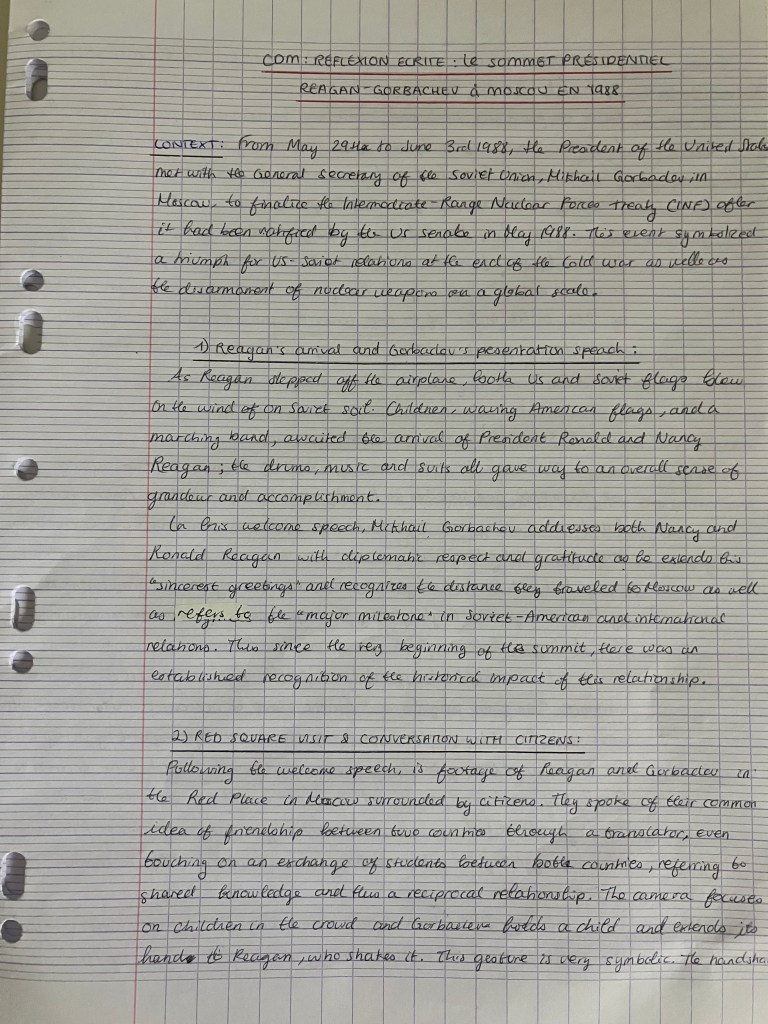 COM: RÉFLEXION ECRITE : Le SOMMET PRÉSIDENTIEL
REAGAN-GORBACHEV à MOSCOU EN 1988
CONTEXT: From May 29th to June 3rd 1988, the President of the United States
met with the General secretary of the Soviet Union, Mikhail Gorbachev, in
Moscow, to finalize the Intermediate-Range Nuclear Forces Treaty (INF) after
it had been ratified by the US senate in May 1988. This event symbolized
a triumph for US-Soviet relations at the end of the Cold war as well as
the disarmament of nuclear weapons on a global scale.
1) Reagan's arrival and Gorbachev's presentation speach :
As Reagan stepped off the airplane, both US and Soviet flags blew
in the wind of on Soviet soil. Children, waving American flags, and a
marching band, awaited the arrival of President Ronald and Nancy
Reagan ; the drums, music and suits all gave way to an overall sense of
grandeur and accomplishment.
In his welcome speech, Mikhail Gorbachev addresses both Nancy and
Ronald Reagan with diplomatic respect and gratitude as he extends his
"sincerest greetings" and recognizes the distance they traveled to Moscow as well
as refers to the "major milestone" in Soviet-American and international
relations. Thus since the very beginning of the summit, there was an
established recognition of the historical impact of this relationship.
2) RED SQUARE VISIT & CONVERSATION WITH CITIZENS :
Following the welcome speech, is footage of Reagan and Gorbachev in
the Red Place in Moscow surrounded by citizens. They spoke of their common
idea of friendship between two countries through a translator, even
touching on an exchange of students between both countries, referring to
shared knowledge and thus a reciprocal relationship. The camera focuses
on children in the crowd and Gorbachev holds a child and extends its
hand to Reagan, who shakes it. This gesture is very symbolic. The handsha